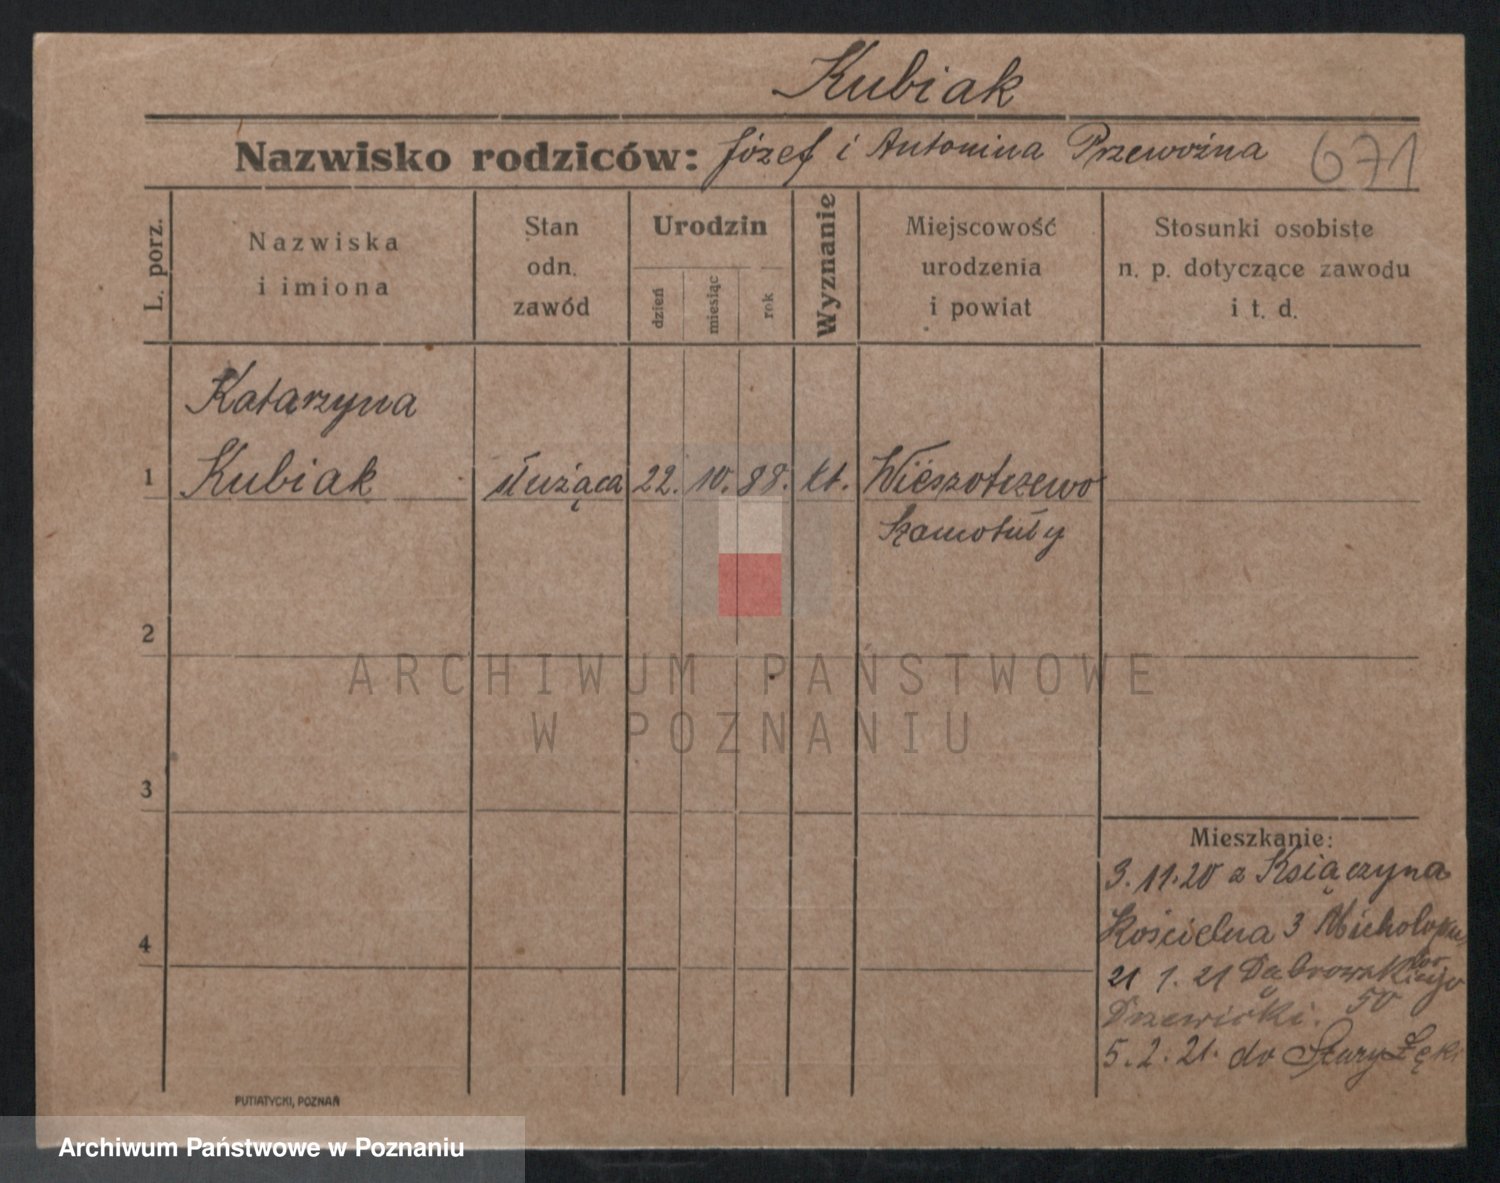 Kubiak
Nazwisko rodziców: Józef i Antonina Przewoźna 671
L. porz.
Nazwiska
i imiona
Stan
odn.
zawód
Urodzin
dzień
miesiąc
rok
Wyznanie
Miejscowość
urodzenia
i powiat
Stosunki osobiste
n. p. dotyczące zawodu
i t. d.
Katarzyna
1 Kubiak służąca 22. 10. 88. kt.
Szamotuły
2
ARCHIWUM PAŃSTWOWE
W POZNANIU
3
Mieszkanie:
3. 11. 20 z Książczyna
Kościelna 3
21 1. 21 Dąbrowskiego
50
5. 2. 21. do
4
PUTIATYCKI, POZNAŃ
Archiwum Państwowe w Poznaniu